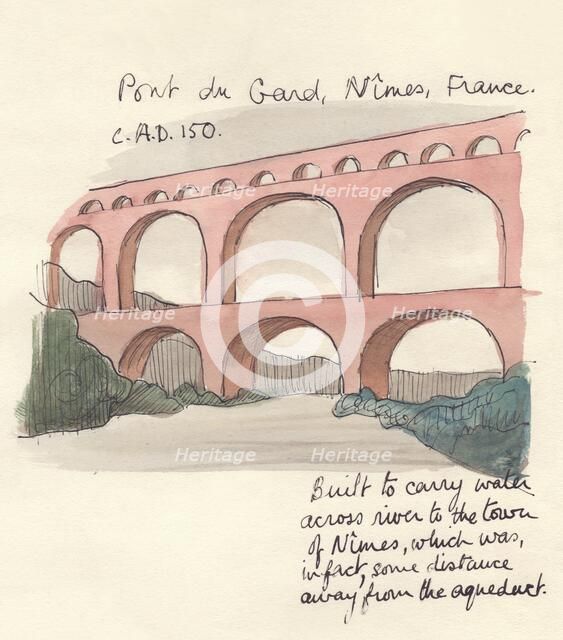 Pont du Gard, Nîmes, France.
C.A.D. 150.
Heritage Heritage
©
Heritage Heritage Heritage
Heritage Heritage
Built to carry water
across river to the town
of Nîmes, which was,
in fact, some distance
away from the aqueduct.